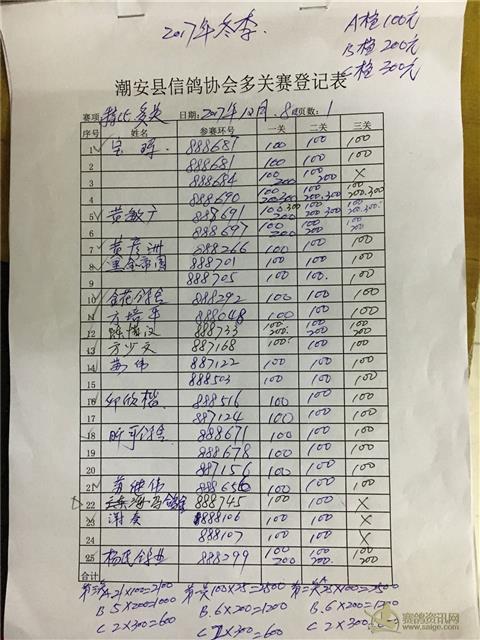 2017年冬季
A检100元
B检200元
C检300元
潮安县信鸽协会多关赛登记表
赛项 日期:2017年12月.8 页数:1
序号 姓名 参赛环号 一关 二关 三关
1 888687 100 100 100
2 888681 100 100 100
3 888684 100 200 100 200 X
4 888690 100 200.300 100 200.300 100 200.300
5 黄敏广 888691 100.300 200 100 200.300 100 200.300
6 888697 100 200 100 200 100 200
7 黄彦洲 888266 100 100 100
8 888701 100 100 100
9 888705 100 100. 100
10 888292 100 100 100
11 方培平 888048 100 100 100
12 888733 100 200. 100 200. 100 200
13 方少文 887168 100 100 100
14 黄伟 887122 100 100 100
15 888503 100 100 100
16 888516 100 100 100
17 887124 100 100 100
18 888671 100 100 100
19 888678 100 100 100
20 887156 100 100 100
21 888656 100 100 100
22 888745 100 100 X
23 谢奏 888106 100 100 X
24 888107 100 100 X
25 888299 100 200 100 200 100 200
合计
A 21×100=2100 第一关 100×25=2500 第二关 25×100=2500
B 5×200=1000 B. 6×200=1200 B. 6×200=1200
C 2×300=600 C 2×300=600 C 2×300=600
赛鸽资讯网
www.saige.com